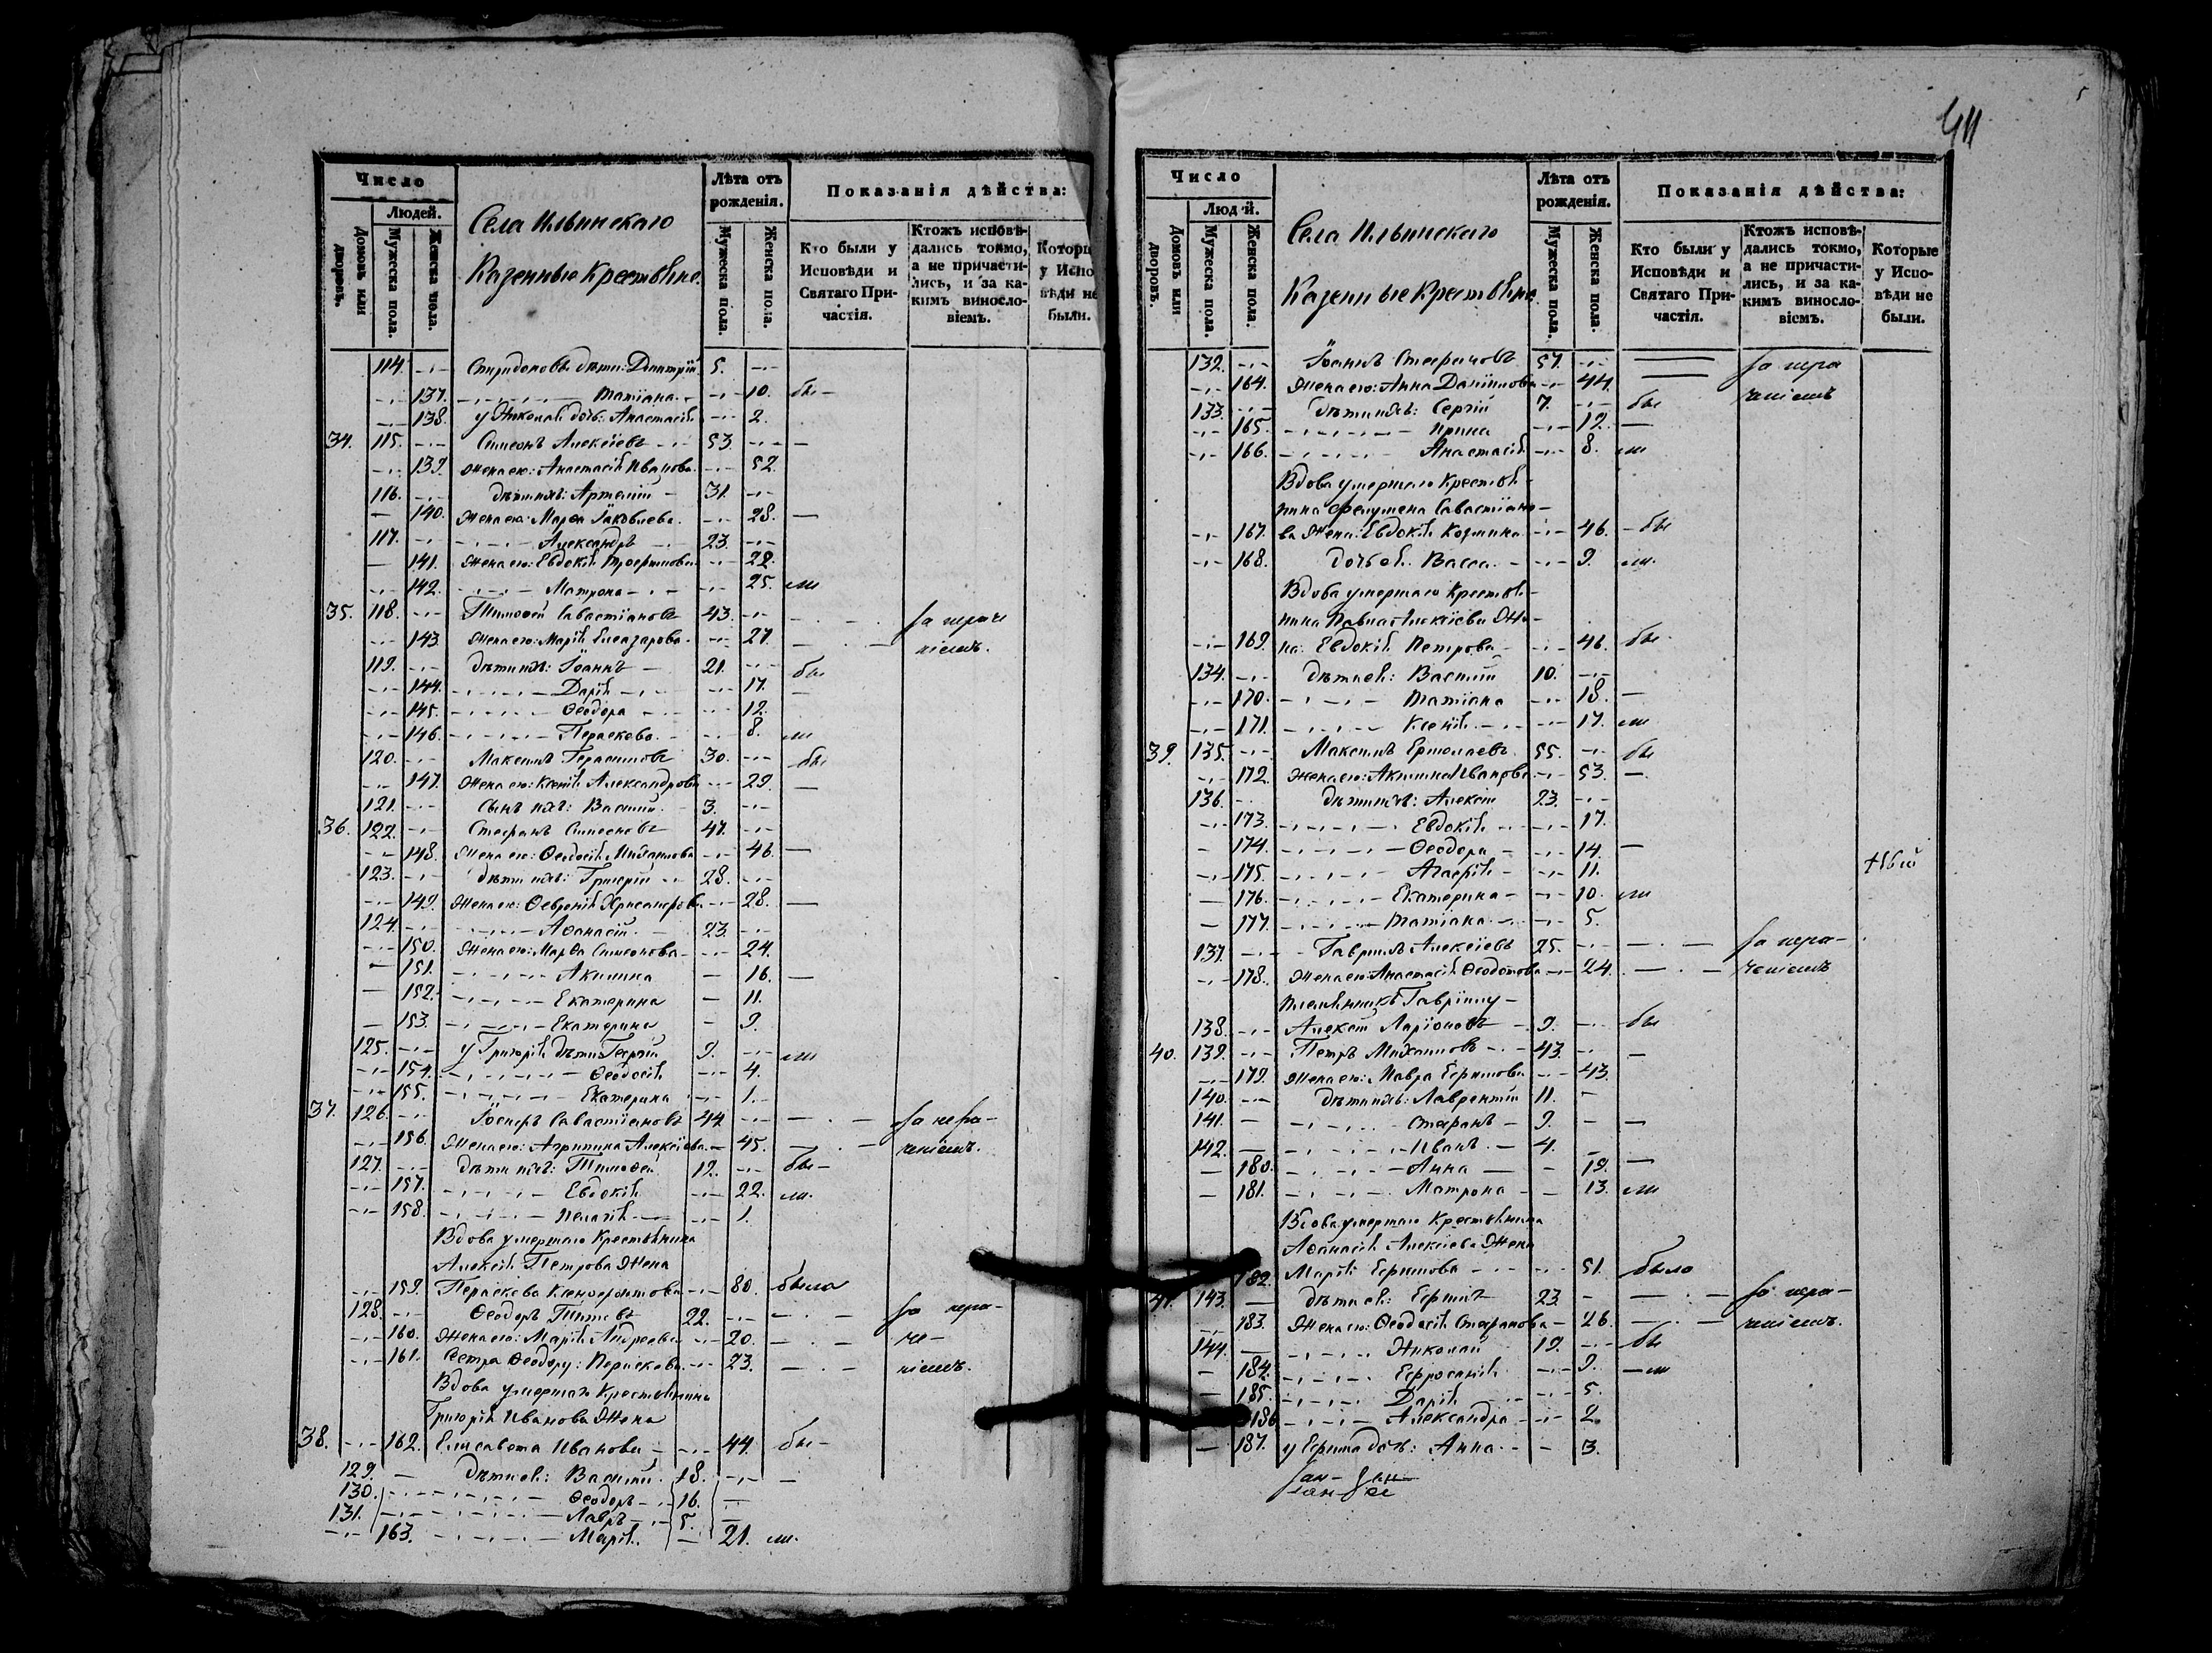 Число
Людей.
Домовъ или дворовъ.
Мужеска пола.
Женска пола.
Села Ильинскаго
Казенные Крестьяне.
Лѣта отъ рожденія.
Мужеска пола.
Женска пола.
Показанія дѣйства:
Кто были у Исповѣди и Святаго Причастія.
Ктожъ исповѣдались токмо, а не причастились, и за какимъ винословіемъ.
Которы у Испо вѣди не были.
114. -,- Спиридоновы дѣти: Димитрій 5. -,-
-,- 137. -,-,-,- Татіана - -,- 10. бы-
-,- 138. у Николая дочь: Анастасія -,- 2.
34. 115. -,- Симеонъ Алексіевъ -,- 53. -,- —
-,- 139. Жена его: Анастасія Иванова. -,- 52.
116. -,- дѣти ихъ: Артемій - 31. -,-
— 140. Жена его: Марѳа Іаковлева. -,- 28. —
117. -,- -,-,- Александръ -,- 23. -,-
— 141. Жена его: Евдокія Трофимова -,- 22.
-,- 142. -,-,- Матрона -,- -,- 25. ли
35. 118. -,- Тимоѳей Савастіановъ 43. -,- -,- за нераче
-,- 143. Жена его: Марія Елеазарова. -,- 27. — ніемъ.
119. -,- дѣти ихъ: Іоаннъ — 21. -,- бы
-,- 144. -,-,-,- Дарія -,- -,- 17. —
-,- 145. -,-,-,- Ѳеодора -,- -,- 12.
-,- 146. -,-,-,- Параскева. - -,- 8. ли
120. -,- Максимъ Герасимовъ 30. -,- бы
-,- 147. Жена его: Ксенія Александрова -,- 29. —
121. -,- Сынъ ихъ: Василій. - 3. -,-
36. 122. -,- Стефанъ Симеоновъ 47. -,-
-,- 148. Жена его: Ѳеодосія Михаилова -,- 46. —
123. -,- дѣти ихъ: Григорій -,- 28. -,-
-,- 149. Жена его: Ѳевронія Хрисанфова -,- 28. —
124. -,- -,-,- Аѳанасій. - 23. -,-
-,- 150. Жена его: Марѳа Симеонова -,- 24.
— 151. -,-,-,- Акилина — 16. —
— 152. -,-,-,- Екатерина — 11.
— 153. -,-,-,- Екатерина - 9.
125. -,- у Григорія дѣти: Георгій 9. -,- ли
-,- 154. -,-,-,- Ѳеодосія -,- 4.
-,- 155. -,-,-,- Екатерина -,- 1.
37. 126. -,- Іосифъ Савастіановъ 44. -,- -,- — за нера-
-,- 156. Жена его: Агрипина Алексіева. — 45. -,- — ченіемъ.
127. -,- дѣти ихъ: Тимоѳей 12. -,- бы-
-,- 157. -,-,-,- Евдокія -,- 22. ли.
-,- 158. -,-,-,- Пелагія — -,- 1.
Вдова умершаго Крестьянина
Алексія Петрова Жена
-,- 159. Параскева Ксенофонтова -,- 80. была
128. -,- Ѳеодоръ Титовъ 22. -,- -,- — за нера-
-,- 160. Жена его: Марія Андреева -,- 20. -,- — че-
-,- 161. Сестра Ѳеодору: Параскева. -,- 23. -,- — ніемъ.
Вдова умершаго Крестьянина
Григорія Иванова Жена
38. -,- 162. Елисавета Иванова - -,- 44. бы-
129. — дѣти ея: Василій. 18. -,- —
130. -,-,-,- Ѳеодоръ -,- 16. —
131. -,-,-,- Лавръ -,- 5. —
-,- 163. -,-,-,- Марія. — 21. ли.
411
Число
Людей.
Домовъ или дворовъ.
Мужеска пола.
Женска пола.
Села Ильинскаго
Казенные Крестьяне
Лѣта отъ рожденія.
Мужеска пола.
Женска пола.
Показанія дѣйства:
Кто были у Исповѣди и Святаго Причастія.
Ктожъ исповѣдались токмо, а не причастились, и за какимъ винословіемъ.
Которые у Исповѣди не были.
132. -,- Іоаннъ Стефановъ 57. -,- — за нера
-,- 164. Жена его: Анна Даніилова -,- 44. — ченіемъ
133. -,- дѣти ихъ: Сергій 7. -,- бы
-,- 165. -,-,-,- Ирина -,- 12. —
-,- 166. -,-,-,- Анастасія -,- 8. ли
Вдова умершаго Крестья-
нина Филимона Савастіано-
-,- 167. ва Жена: Евдокія Козмина. -,- 46. - бы
-,- 168. дочь ея. Васса. - -,- 9. ли.
Вдова умершаго Крестья-
нина Павла Алексіева Же-
-,- 169. на: Евдокія Петрова -,- 46. бы
134. -,- дѣти ея: Василій 10. -,-
-,- 170. -,-,-,- Татіана -,- 18. —
-,- 171. -,-,-,- Ксенія. -,- -,- 17. ли
39. 135. -,- Максимъ Ермолаевъ. 55. -,- бы
-,- 172. Жена его: Акилина Иванова -,- 53. —
136. -,- дѣти ихъ: Алексій 23. -,-
-,- 173. -,-,-,- Евдокія -,- -,- 17.
- 174. -,-,-,- Ѳеодора - -,- 14. —
-,- 175. -,-,-,- Агафія - -,- 11.
— 176. -,-,-,- Екатерина - -,- 10. ли
— 177. -,-,-,- Татіана -,- 5.
137. -,- Гавріилъ Алексіевъ 25. -,- — , — за нера-
-,- 178. Жена его: Анастасія Ѳеодотова -,- 24. — , — ченіемъ
Племянникъ Гавріилу -
138. -,- Алексій Ларіоновъ - 9. -,- бы
40. 139. -,- Петръ Михаиловъ -,- 43. -,- —
-,- 179. Жена его: Мавра Ефимова -,- 43.
140. -,- дѣти ихъ: Лаврентій 11. -
141. — -,-,-,- Стефанъ - 9. - —
142. — -,-,-,- Иванъ. - 4. -
— 180. -,-,-,- Анна — - 19. —
— 181. -,-,-,- Матрона - - 13. ли
Вдова умершаго Крестьянина
Аѳанасія Алексіева Жена
182. Марія Ефимова -,- -,- 51. была
41. 143. — дѣти ея: Ефимъ 23. - — , — за нера-
-,- 183. Жена его: Ѳеодосія Стефанова - 26. — , — ченіемъ.
144. — -,-,-,- Николай 19. -,- бы
— 184. -,-,-,- Ефросинія. -,- 9. — ли
— 185. -,-,-,- Дарія -,- -,- 5.
186 -,-,-,- Александра -,- 2.
— 187. у Ефима дочь: Анна -,- - 3.